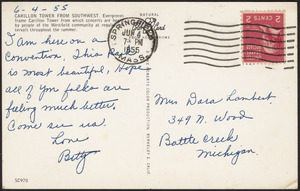 6-4-55
CARILLON TOWER FROM SOUTHWEST. Evergreens
frame Carillon Tower from which concerts are
by people of the Westfield community at regular
tervals throughout the summer.
I am here on a
Convention. This place
is most beautiful, Hope
all of you folks are
feeling much better.
Come see us.
Love
Betty
SC970
NATURAL
COLOR PRODUCTION, BERKELEY 2, CALIF.
SPRINGFIELD
JUN 4
7 PM
1955
MASS.
2 CENTS 2
Mrs Dara Lambert
349 N. Wood
Battle Creek
Michigan.